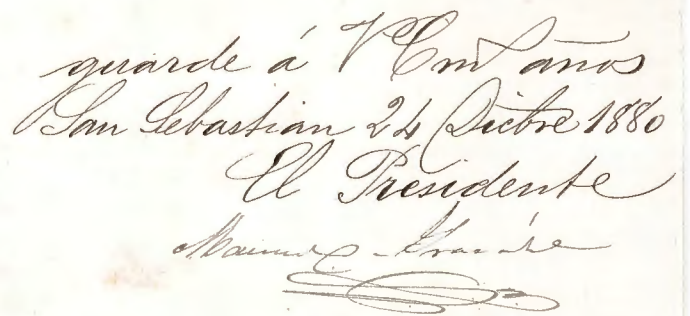 guarde á V E m.s años
San Sebastian 24 Dicbre 1880
El Presidente
Manuel